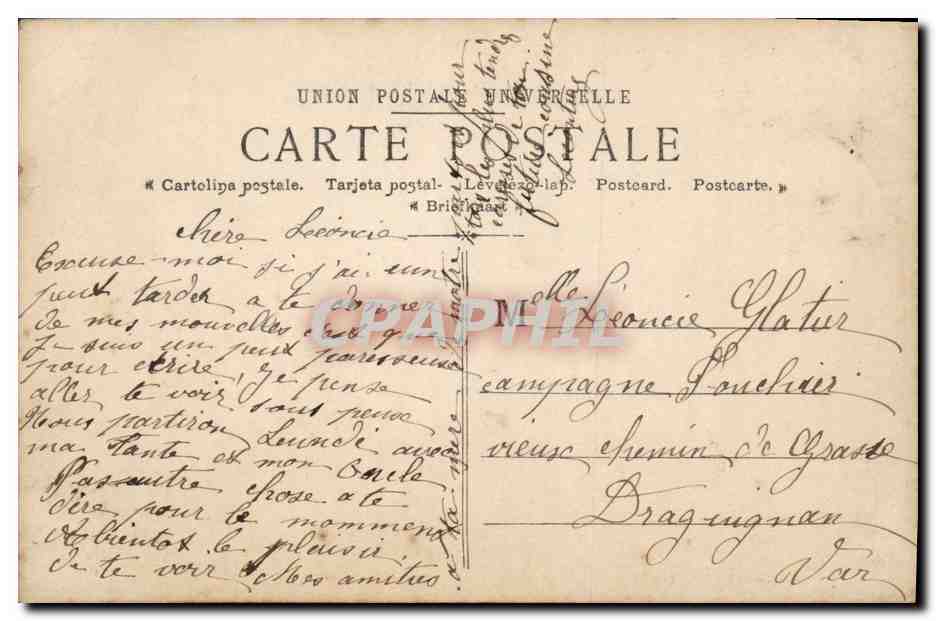 UNION POSTALE UNIVERSELLE
CARTE POSTALE
Cartolina postale. Tarjeta postal- Levelezo-lap. Postcard. Postcarte.
Briefkaart
chère Léoncie
Excuse-moi si j'ai un
peut tarder a te donner
de mes mouvelles c'est q
Je suis un peux paresseuse
pour ecrire, je pense
aller te voir sous peux
Nous partiron Leundi avec
ma tante et mon Oncle
Pas autre chose a te
dire pour le mommend
Abientot le plaisir
de te voir Mes amitiés
a ta mère
tendre
de ton
cousine
Melle Léoncie Glatier
campagne
vieux chemin de Grasse
Draguignan
Var
CPAPHIL